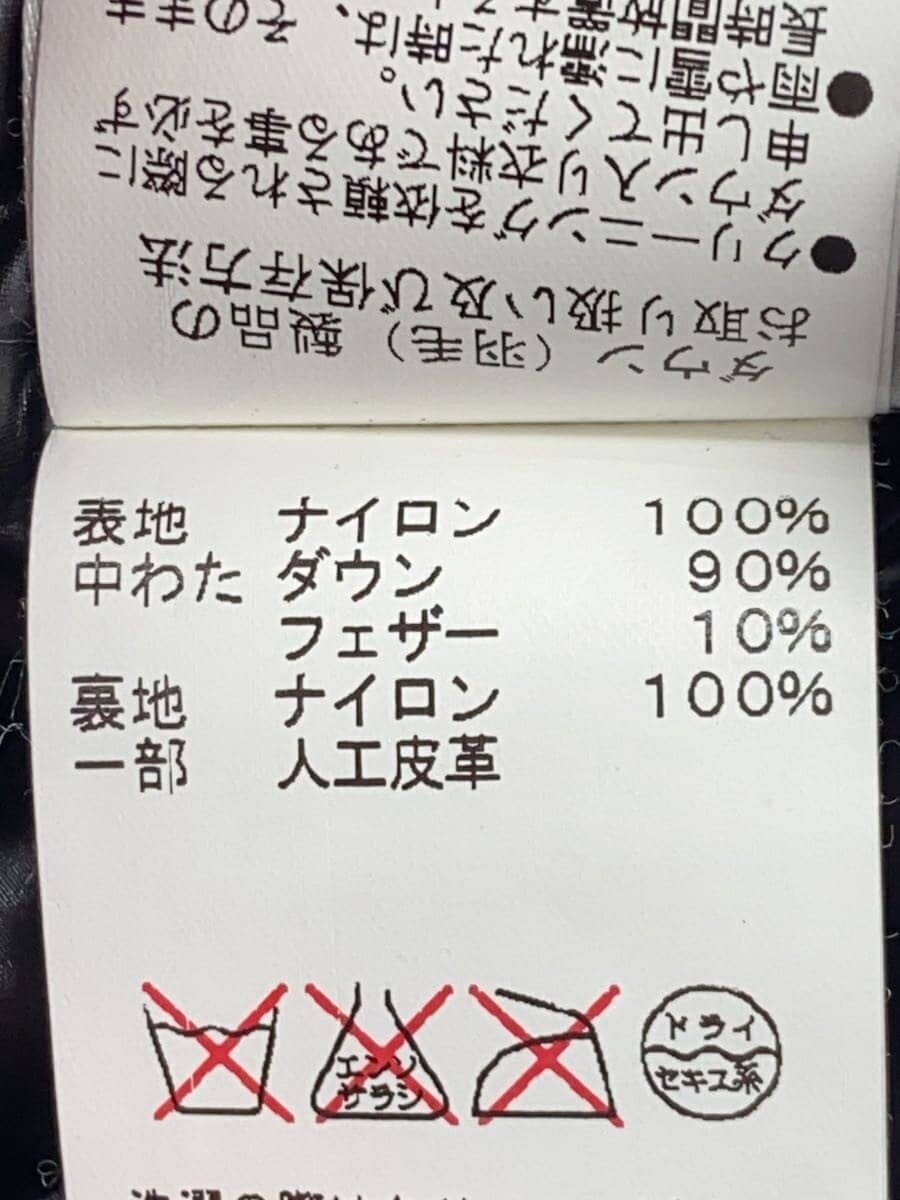 ダウン（羽毛）製品の
お取り扱い及び保存方法
●クリーニングを依頼される際に
ダウン入り衣料である事を必ず
申し出てください。
●雨や雪に濡れた時は、そのまま
長時間放置
表地 ナイロン 100%
中わた ダウン 90%
フェザー 10%
裏地 ナイロン 100%
一部 人工皮革
エンソ
サラシ
ドライ
セキユ系